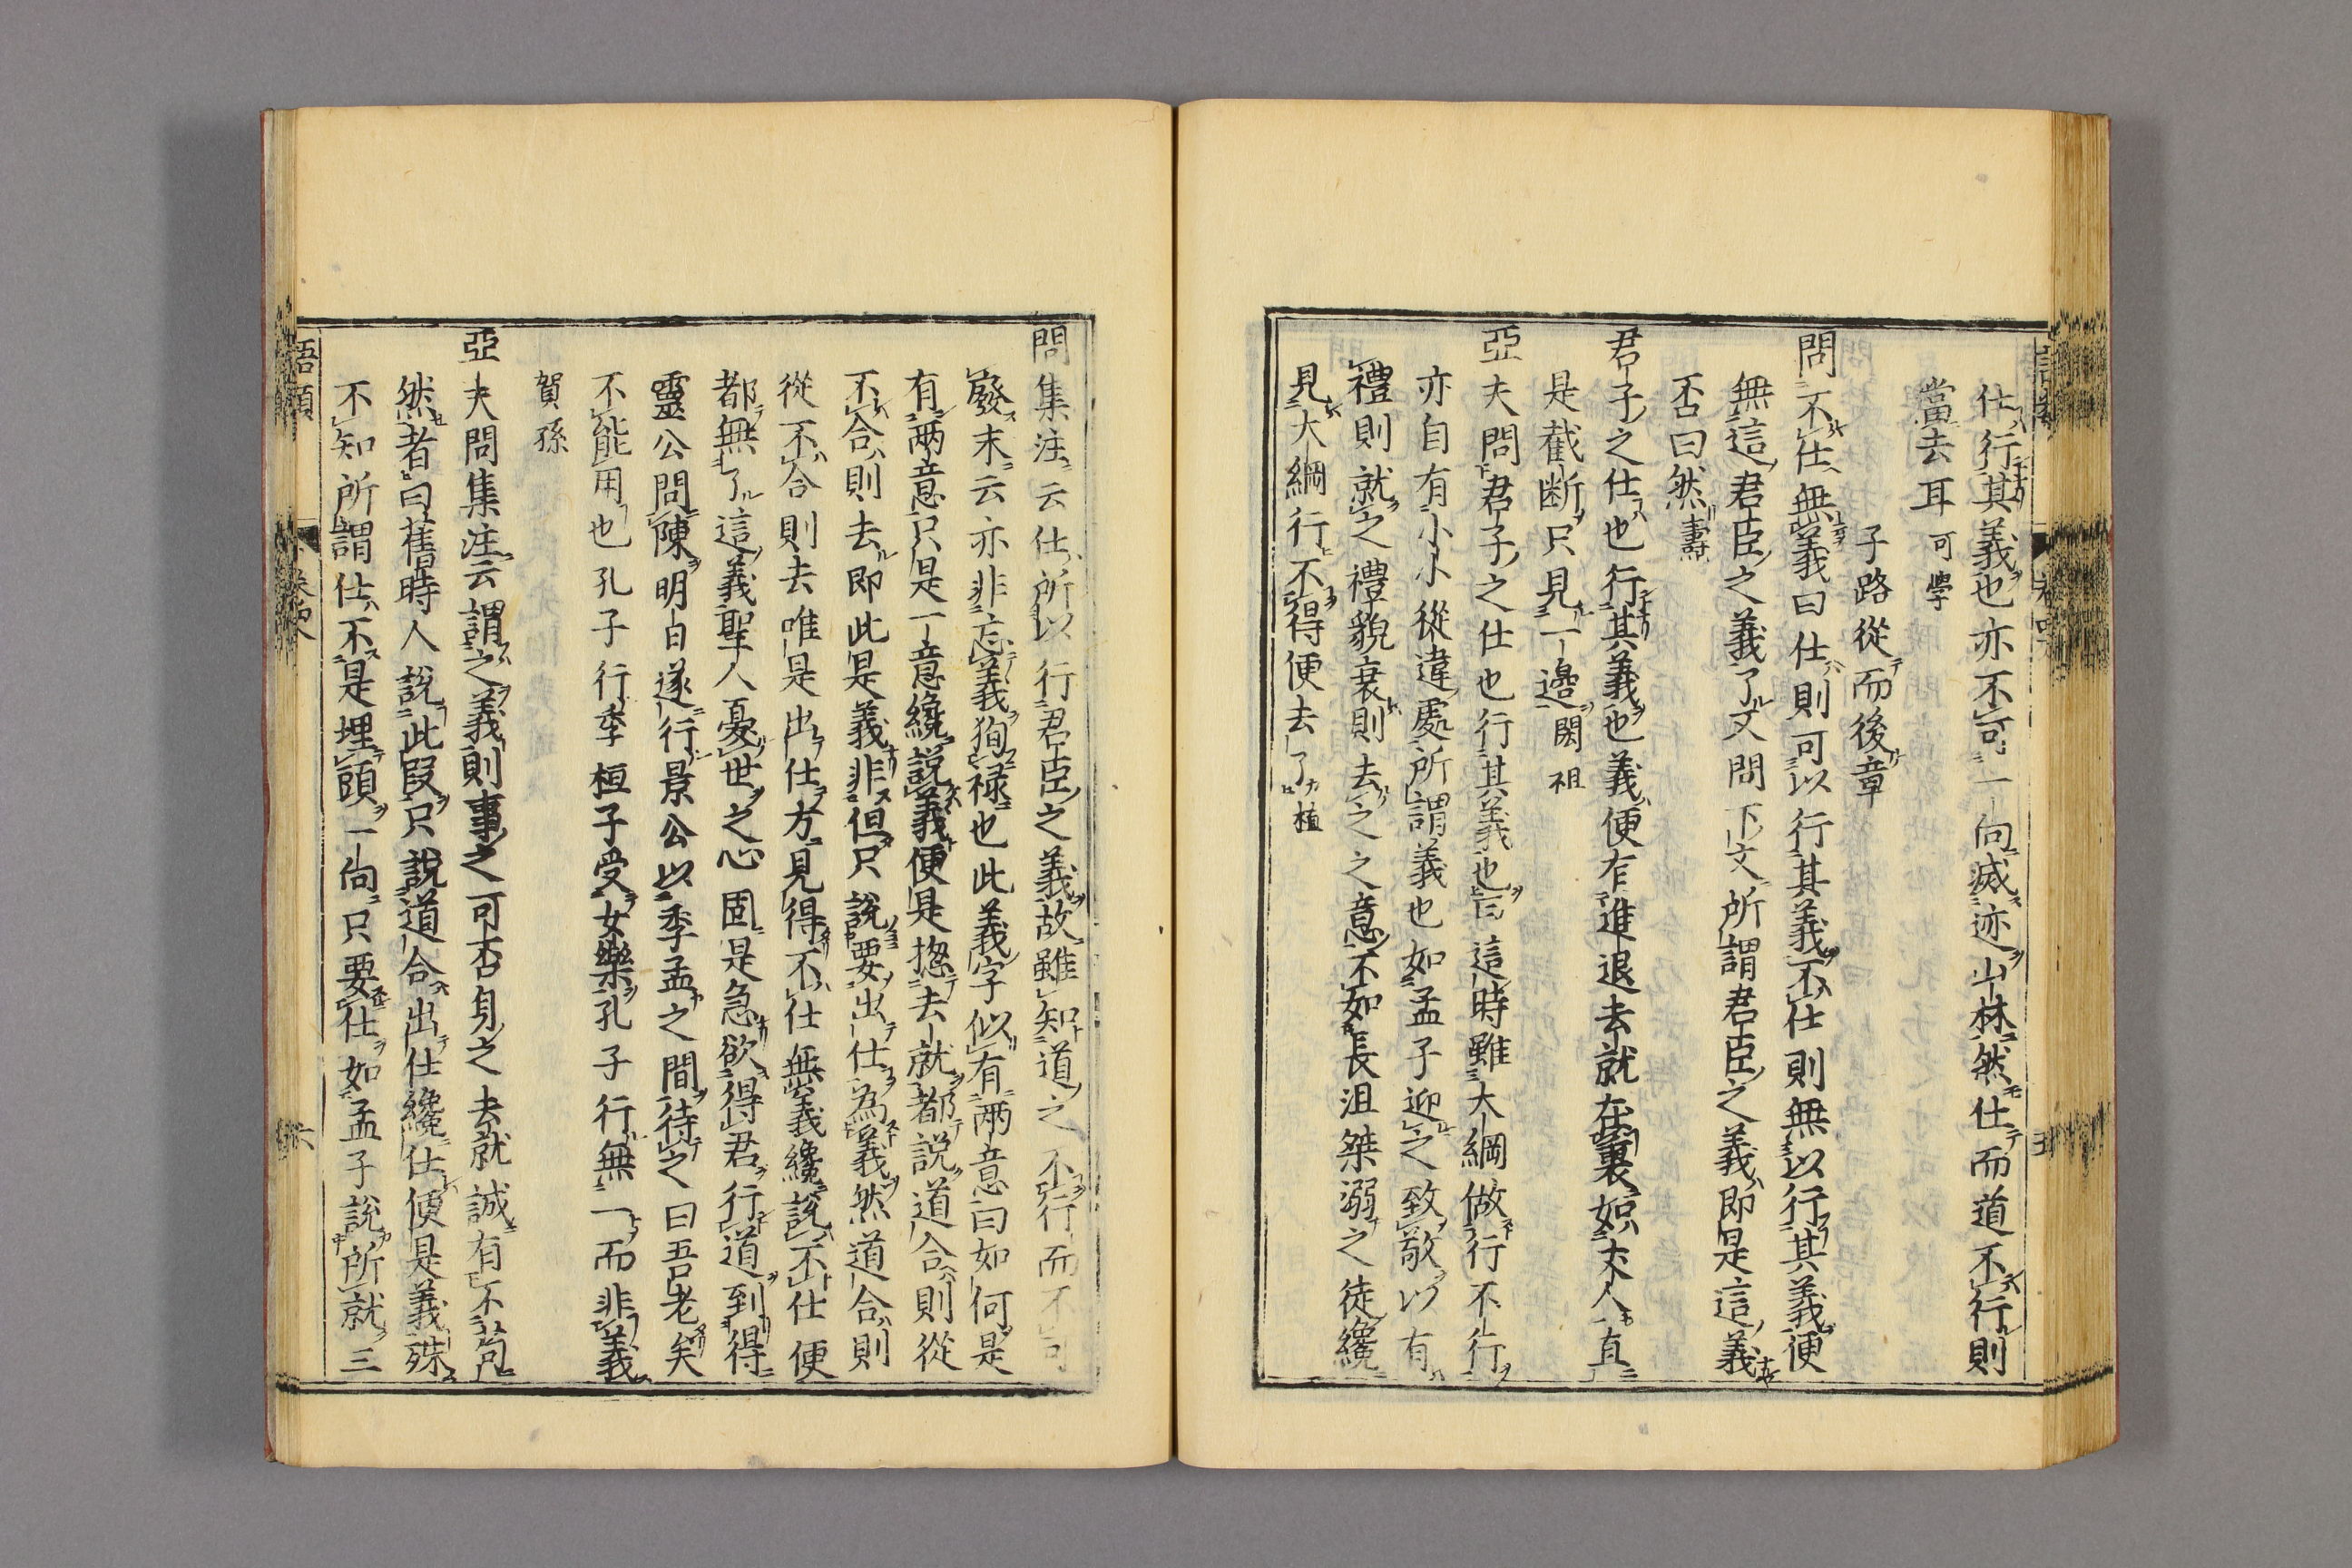 仕行其義也亦不可一向滅迹山林然仕而道不行則
當去耳 可學
子路從而後章
問不仕無義曰仕則可以行其義不仕則無以行其義便
無這君臣之義了又問下文所謂君臣之義即是這義
否曰然 燾
君子之仕也行其義也義便有進退去就在裏如丈人直
是截斷只見一邊 閎祖
亞夫問君子之仕也行其義也曰這時雖大綱做行不行
亦自有小小從違處所謂義也如孟子迎之致敬以有
禮則就之禮貌衰則去之之意不如長沮桀溺之徒纔
見大綱行不得便去了 植
問集注云仕所以行君臣之義故雖知道之不行而不可
發末云亦非忘義徇祿也此義字似有兩意曰如何是
有兩意只是一意纔說義便是揔去就都說道合則從
不合則去即此是義非但只說要出仕為義然道合則
從不合則去唯是出仕方見得不仕無義纔說不仕便
都無了這義聖人憂世之心固是急欲得君行道到得
靈公問陳明日遂行景公以季孟之間待之曰吾老矣
不能用也孔子行季桓子受女樂孔子行無一而非義
賀孫
亞夫問集注云謂之義則事之可否身之去就誠有不苟
然者曰舊時人說此段只說道合出仕纔仕便是義殊
不知所謂仕不是埋頭一向只要仕如孟子說所就三
語類
卷四八
六